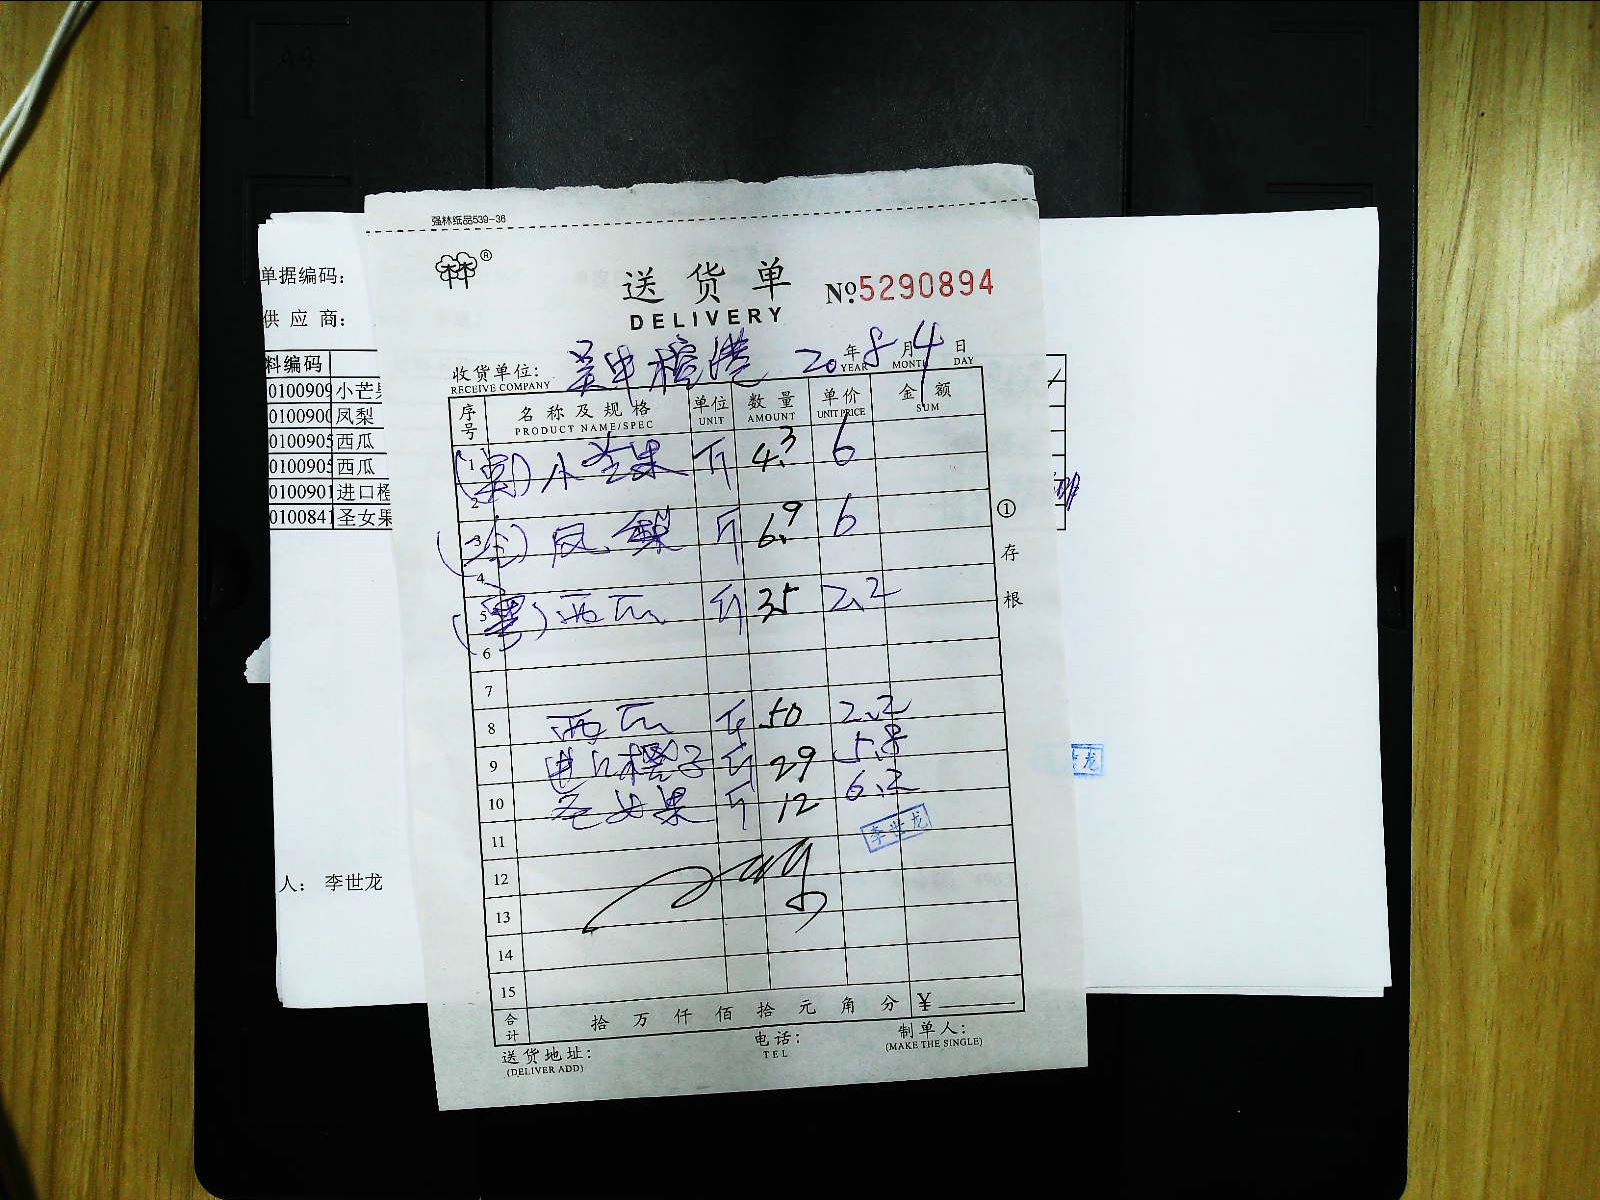 强林纸品539-36
林®
单据编码：
供 应 商：
送货单
DELIVERY
№5290894
收货单位：
RECEIVE COMPANY
20年8月4日
YEAR MONTH DAY
料编码
0100909 小芒果
0100900 凤梨
0100905 西瓜
0100905 西瓜
0100901 进口橙
0100841 圣女果
人： 李世龙
序号 名称及规格 单位 数量 单价 金额
PRODUCT NAME/SPEC UNIT AMOUNT UNIT PRICE SUM
1 斤 4.3 6
2
3 凤梨 斤 6.9 6
4
5 西瓜 斤 35 2.2
6
7
8 西瓜 斤 50 2.2
9 进口橙子 斤 29 5.8
10 圣女果 斤 12 6.2
11 李世龙
12
13
14
15
合计 拾 万 仟 佰 拾 元 角 分 ¥
①存根
送货地址：
(DELIVER ADD)
电话：
TEL
制单人：
(MAKE THE SINGLE)
龙